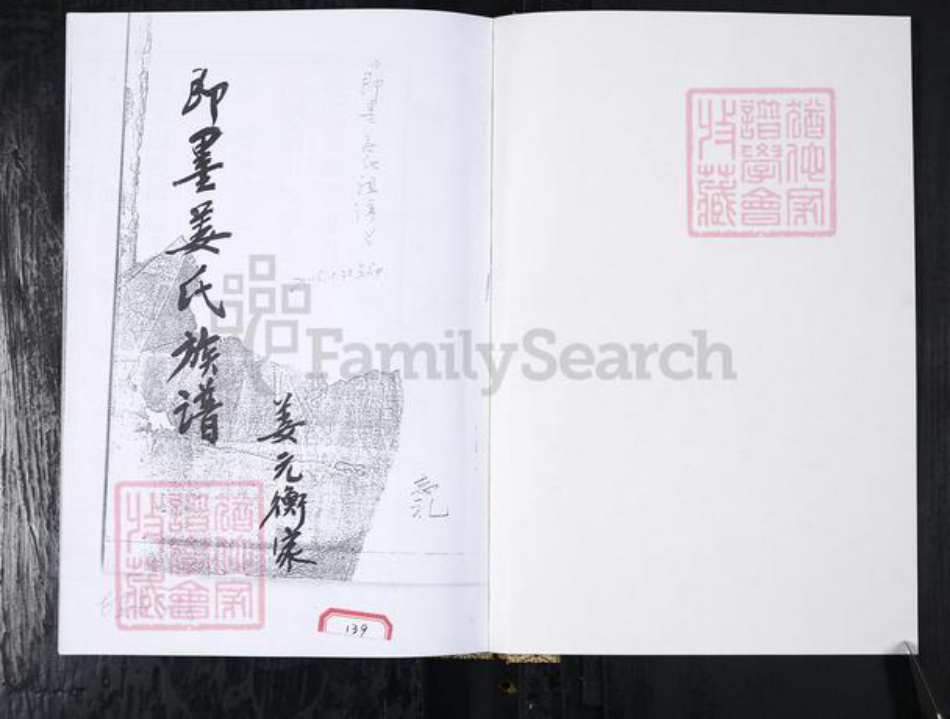 即墨姜氏族谱
姜元衡家
即墨姜氏族谱
139
FamilySearch
猶他家
譜學會
收藏
猶他家
譜學會
收藏